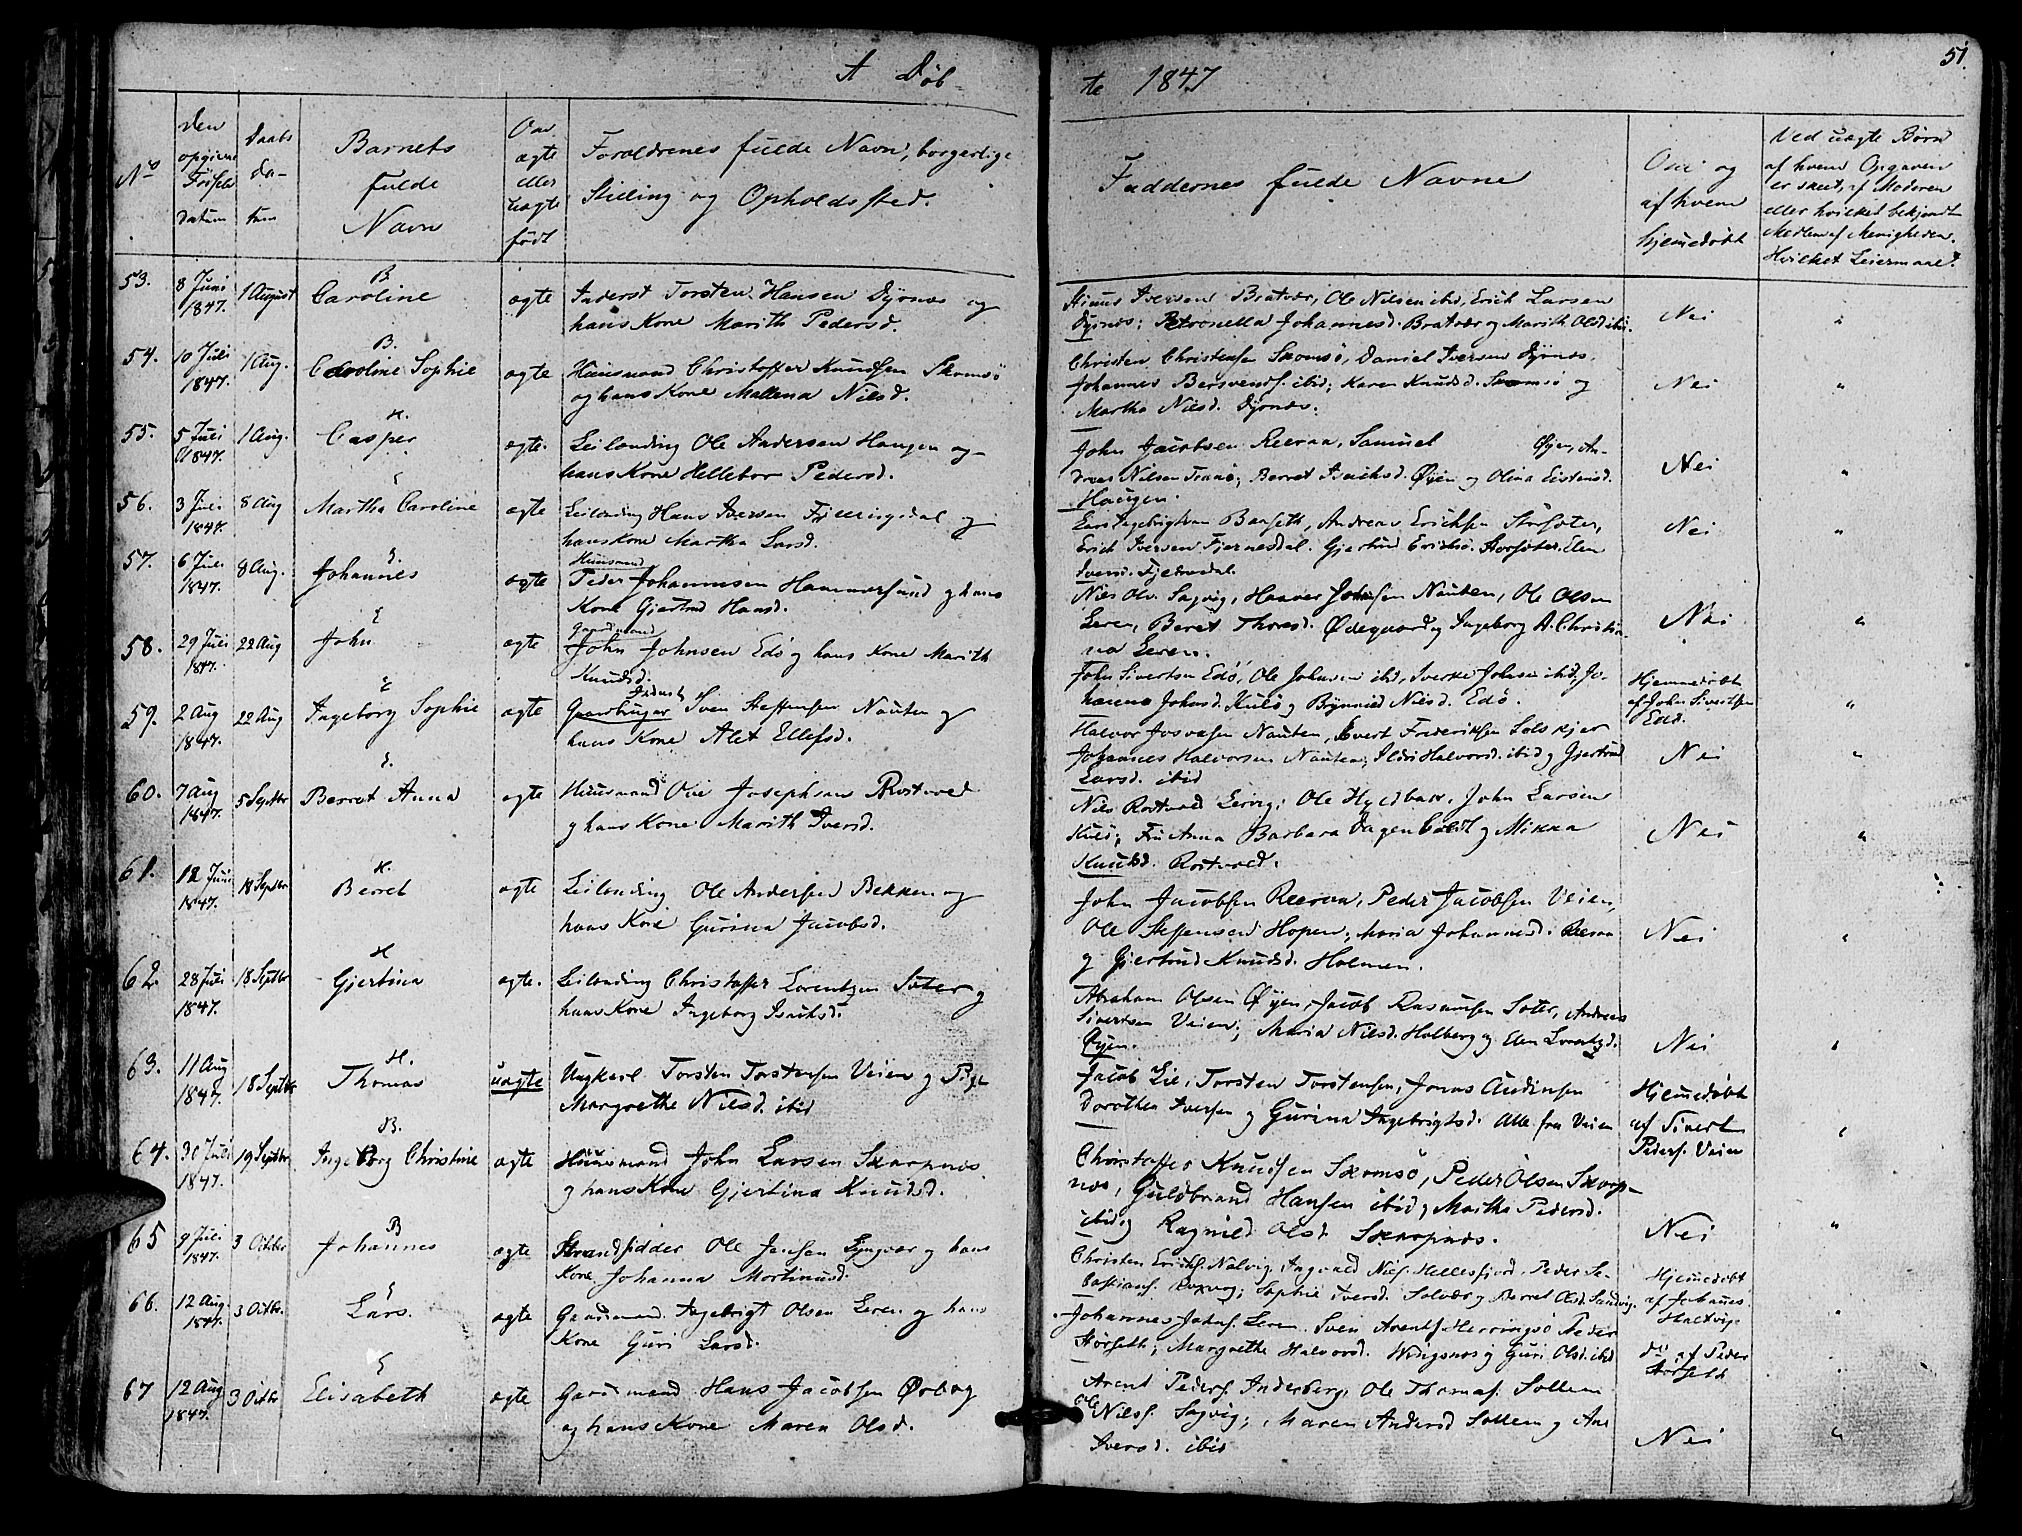 A Døb-
te 1847
51.
No
Den opgivne Fødsels datum
Daabs da-tum
Barnets fulde Navn
Om ægte eller uægte født
Forældrenes fulde Navn, borgerlige Stilling og Opholdssted.
Faddernes fulde Navne
Om og af hvem hjemmedøbt
Ved uægte Børn af hvem Opgaven er skeet, af Moderen eller hvilket bekjendt Medlem af Menigheden. Hvilket Leiermaal?
53. 8 Juni 1847. 1 August B Caroline ægte Inderst Torsten Hansen Dyrnæs og
hans Kone Marith Pedersd.
Iversen Bratvær, Ole Nilsen ibid, Erich Larsen
Dyrnæs; Petronella Johannesd. Bratvær og Marith Olsd ibid. Nei "
54. 10 Juli 1847. 1 Aug. B. Caroline Sophie ægte Huusmand Christoffer Knudsen Skomsø
og hans Kone Mallena Nilsd.
Christen Christensen Skomsø, Daniel Iversen Dyrnæs,
Johannes Bersvends. ibid; Karen Knudsd. Skomsø og
Martha Nilsd. Dyrnæs. Nei "
55. 5 Juli 1847. 1 Aug. H. Casper ægte. Leilending Ole Andersen Haugen og
hans Kone Hellebor Pedersd.
John Jacobsen Reeraa, Samuel Øyen, An-
dreas Nilsen Tranø; Berret Isachsd. Øyen og Olina Eistensd.
Haugen. Nei "
56. 3 Juli 1847. 8 Aug E Martha Caroline ægte Leilending Hans Iversen og
hans Kone Martha Larsd.
Lars Ingebrigtsen Bærseth, Andreas Erichsen Storsøter,
Erich Iversen Gjertrud Erichsd. Storsøter, Elen
Iversd. Nei "
57. 6 Juli 1847. 8 Aug. E. Johannes ægte Huusmand
Peder Johannesen Hammersund og hans
Kone Gjertrud Hansd.
Nils Ols. Sagvig, Haavar Johnsen Nauten, Ole Olsen
Leren, Beret Thoresd. Ødegaard og Ingeborg A. Christia-
na Leren. Nei "
58. 29 Juli 1847. 22 Aug E John ægte Gaardmand
John Johnsen Edø og hans Kone Marith
Knudsd.
John Sivertsen Edø, Ole Johnsen ibid, Sverke Johnsen ibid, Jo-
hanna Johnsd. Kulø og Brynnild Nilsd. Edø. Hjemmedøbt af John Sivertsen Edø. "
59. 2 Aug 1847. 22 Aug E Ingeborg Sophie ægte Inderst
Gaardbruger Sven Steffensen Nauten og
hans Kone Alet Ellefsd.
Halvor Josvasen Nauten, Evert Frederiksen Solskjer
Johannes Halvorsen Nauten; Ildri Halvorsd. ibid og Gjertrud
Larsd. ibid Nei "
60. 7 Aug 1847. 5 Septbr E. Berret Anna ægte Huusmand Ole Josephsen Rostvold
og hans Kone Marith Iversd.
Nils Rostvold Lervig; Ole Hyldbak, John Larsen
Kulø; Fru Anna Barbara Dagenbolt og Mikaa
Knudsd. Rostvold. Nei "
61. 12 Juni 1847. 18 Septbr H. Berret ægte Leilending Ole Andersen Bekken og
hans Kone Gurina Jacobsd.
John Jacobsen Reeraa, Peder Jacobsen Veien,
Ole Steffensen Hopen; Maria Johannesd. Reeraa
og Gjertrud Knudsd. Holmen. Nei "
62. 28 Juli 1847. 18 Septbr H Gjertina ægte. Leilending Christoffer Lorentzen Søter og
hans Kone Ingeborg Isachsd.
Abraham Olsen Øyen, Jacob Rasmusen Søter, Andreas
Sivertsen Veien; Maria Nilsd. Holberg og Elen Lorentzd.
Øyen. Nei "
63. 11 Aug 1847. 18 Septbr H. Thomas uægte Ungkarl Torsten Torstensen Veien og Pige
Margrethe Nilsd. ibid
Jacob Lie, Torsten Torstensen, Jonas Audensen
Dorothea Iversen og Gurina Ingebrigtsd. Alle fra Veien Hjemmedøbt af Sivert Peders. Veien "
64. 30 Juli 1847. 19 Septbr. B. Ingeborg Christine ægte Huusmand John Larsen Skarpnæs
og hans Kone Gjertina Knudsd.
Christoffer Knudsen Skomsø, Peder Olsen Skarp-
næs, Guldbrand Hansen ibid; Martha Pedersd.
ibid og Ragnild Olsd. Skarpnæs. Nei "
65 9 Juli 1847. 3 Octbr B Johannes ægte Strandsidder Ole Jensen Lyngvær og hans
Kone Johanna Mortinusd.
Christen Erichs. Nalvig, Ingvald Nils. Hellesfjord, Peder Se-
bastians. Sophie Iversd. Solvær og Berret Olsd. Sandvig. Hjemmedøbt af Johannes
66. 12 Aug. 1847. 3 Octbr. E Lars ægte Gaardmand Ingebrigt Olsen Leren og hans
Kone Guri Larsd.
Johannes Johns. Leren, Sven Arents. Herringsø Peder
Storseth; Margrethe Halvorsd. og Guri Olsd. ibid do af Peder Storseth "
67 12 Aug 1847. 3 Octbr E Elisabeth ægte Gaardmand Hans Jacobsen Ørbog
og hans Kone Maren Olsd.
Arent Peders. Anderberg, Ole Thomas. Sollem
Ole Nilss. Sagvig; Maren Andersd Sollem og Ane
Iversd. ibid Nei "